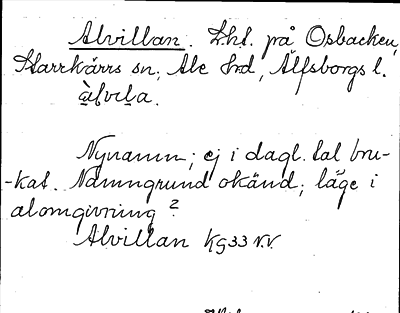 Alvillan. Lht. på Osbacken,
Starrkärrs sn, Ale hrd, Älfsborgs l.
àlvila.
Nynamn; ej i dagl. tal bru-
-kat. Namngrund okänd; läge i
alomgivning?
Alvillan Kg33 N.V.